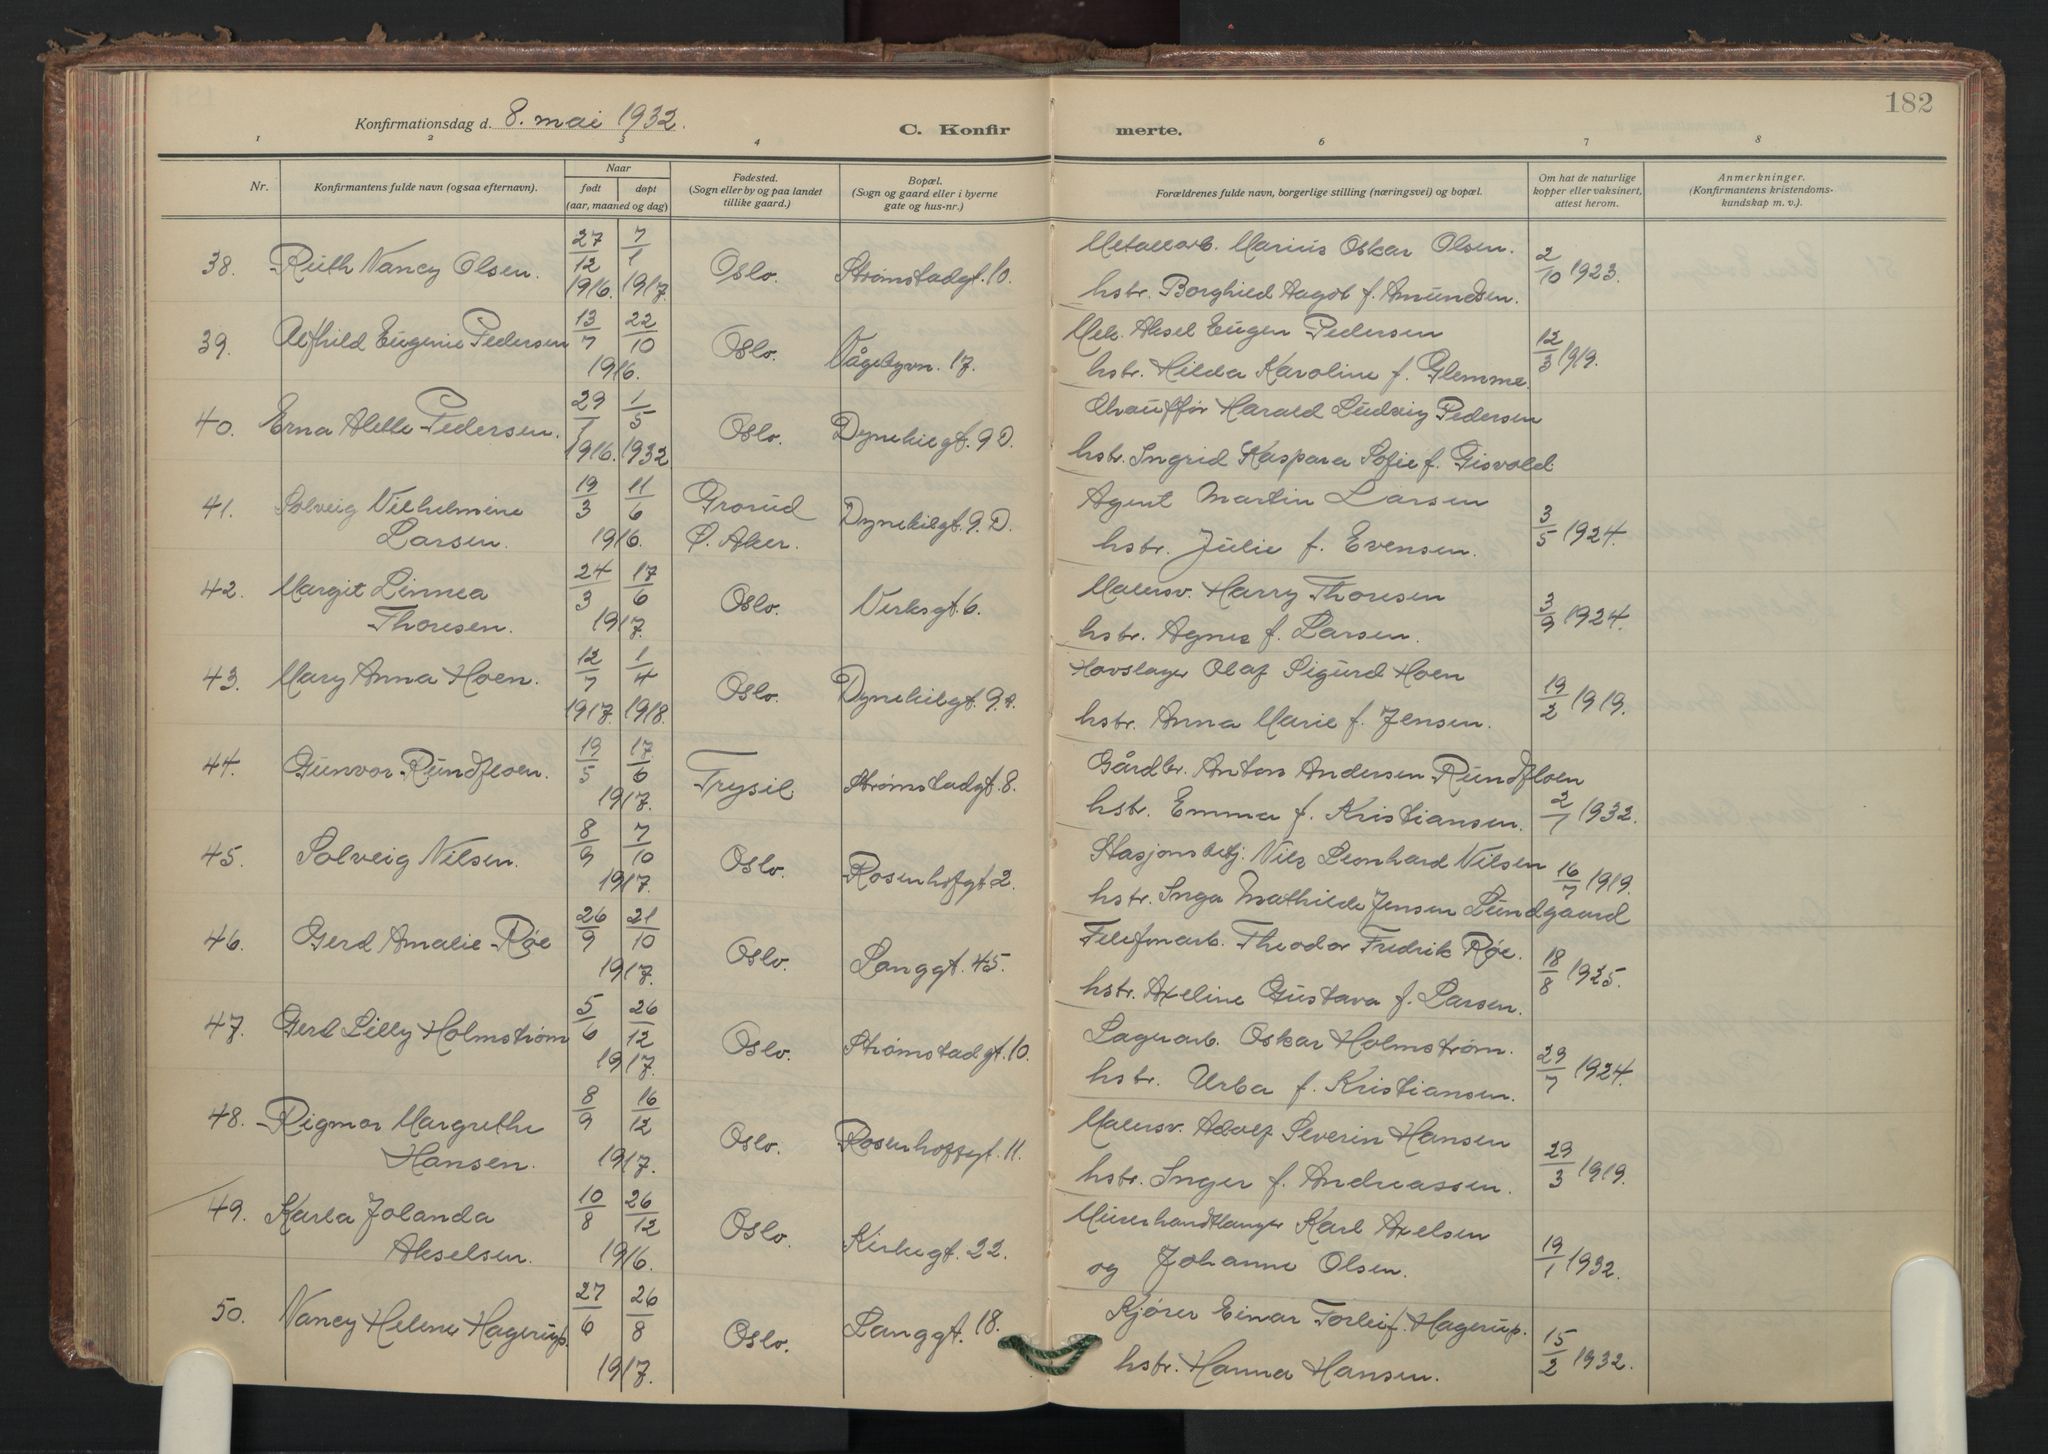 182
Konfirmationsdag d. 8. mai 1932.
C. Konfirmerte.
1 2 3 4 5 6 7 8
Nr.
Konfirmantens fulde navn (ogsaa efternavn).
Naar
født døpt
(aar, maaned og dag)
Fødested.
(Sogn eller by og paa landet
tillike gaard.)
Bopæl.
(Sogn og gaard eller i byerne
gate og hus-nr.)
Forældrenes fulde navn, borgerlige stilling (næringsvei) og bopæl.
Om hat de naturlige
kopper eller vaksinert,
attest herom.
Anmerkninger.
(Konfirmantens kristendoms-
kundskap m. v.).
38. Ruth Nancy Olsen. 27/12 1916. 7/1 1917. Oslo. Strømstadgt. 10. Metallarb. Marius Oskar Olsen. 2/10 1923.
hstr. Borghild Aagot f. Amundsen.
39. Alfhild Eugenie Pedersen 13/7 22/10 1916. Oslo. Vågebyvn. 17. Mek. Aksel Eugen Pedersen 12/3 1919.
hstr. Hilda Karoline f. Glemme.
40. Erna Alette Pedersen. 29/7 1916. 1/5 1932 Oslo. Dynekilgt. 9 D. Chauffør Harald Ludvig Pedersen
hstr. Ingrid Kaspara Sofie f. Gisvold.
41. Solveig Vilhelmine 19/3 11/6 Grorud Dynekilgt. 9. D. Agent Martin Larsen 3/5 1924.
Larsen. 1916. Ø. Aker. hstr. Julie f. Evensen.
42. Margit Linnea 24/3 17/6 Oslo. Verksgt. 6. Malersv. Harry Thoresen 3/9 1924.
Thoresen. 1917. hstr. Agnes f. Larsen.
43. Mary Anna Hoen. 12/7 1917. 1/4 1918. Oslo. Dynekilgt. 9. Hovslager Olaf Sigurd Hoen 19/2 1919.
hstr. Anna Marie f. Jensen.
44. Gunvor Rundfloen. 19/5 17/6 1917. Trysil Strømstadgt. 8. Gårdbr. Anton Andersen Rundfloen
hstr. Emma f. Kristiansen. 2/7 1932.
45. Solveig Nilsen. 8/9 7/10 1917. Oslo. Rosenhofgt 2. Stasjonsbetj. Nils Leonhard Nilsen 16/7 1919.
hstr. Inga Mathilde Jensen Lundgaard
46. Gerd Amalie Røe 26/9 21/10 1917. Oslo. Langgt. 45. Telefonarb. Theodor Fredrik Røe. 18/8 1925.
hstr. Axeline Gustava f. Larsen.
47. Gerd Lilly Holmstrøm 5/6 26/12 1917. Oslo. Strømstadgt. 10. Lagerarb. Oskar Holmstrøm. 29/7 1924.
hstr. Urba f. Kristiansen.
48. Rigmor Margrethe 8/9 16/12 Oslo. Rosenhoffgt. 11. Malersv. Adolf Severin Hansen 29/3 1919.
Hansen. 1917. hstr. Inger f. Andreassen.
49. Karla Jolanda 10/8 26/12 Oslo. Kirkegt. 22. Murerhandtlanger Karl Axelsen 19/1 1932.
Akselsen. 1916. og Johanne Olsen.
50. Nancy Helene Hagerup. 27/6 26/8 1917. Oslo. Langgt. 18. Kjører Einar Torleif Hagerup. 15/2 1932.
hstr. Hanna Hansen.